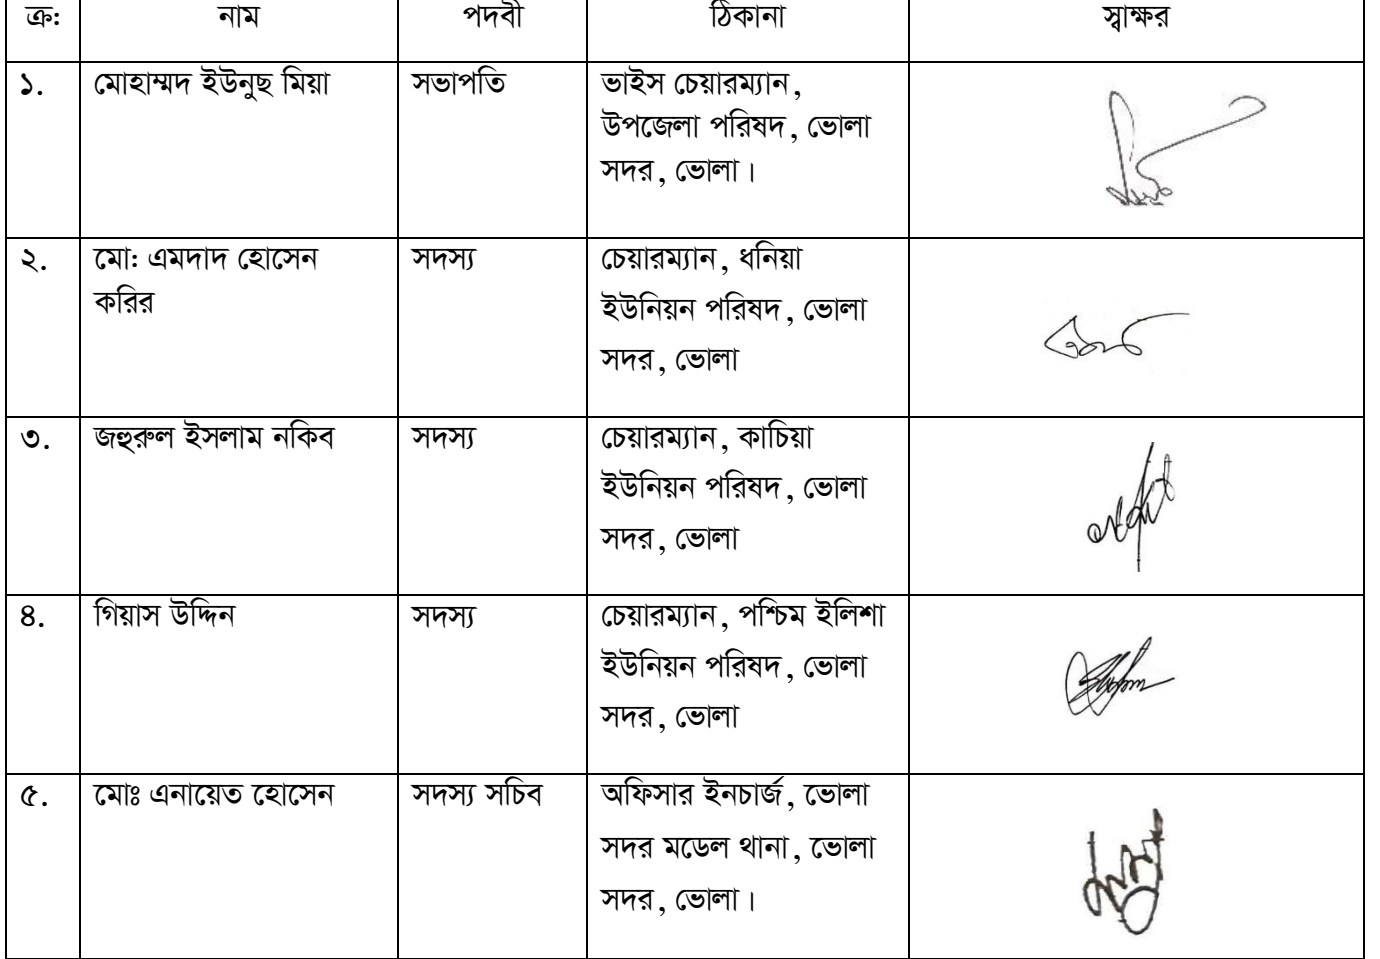 ক্র: নাম পদবী ঠিকানা স্বাক্ষর
১. মোহাম্মদ ইউনুছ মিয়া সভাপতি ভাইস চেয়ারম্যান,
উপজেলা পরিষদ, ভোলা
সদর, ভোলা।
২. মো: এমদাদ হোসেন সদস্য চেয়ারম্যান, ধনিয়া
করির ইউনিয়ন পরিষদ, ভোলা
সদর, ভোলা
৩. জহুরুল ইসলাম নকিব সদস্য চেয়ারম্যান, কাচিয়া
ইউনিয়ন পরিষদ, ভোলা
সদর, ভোলা
৪. গিয়াস উদ্দিন সদস্য চেয়ারম্যান, পশ্চিম ইলিশা
ইউনিয়ন পরিষদ, ভোলা
সদর, ভোলা
৫. মোঃ এনায়েত হোসেন সদস্য সচিব অফিসার ইনচার্জ, ভোলা
সদর মডেল থানা, ভোলা
সদর, ভোলা।